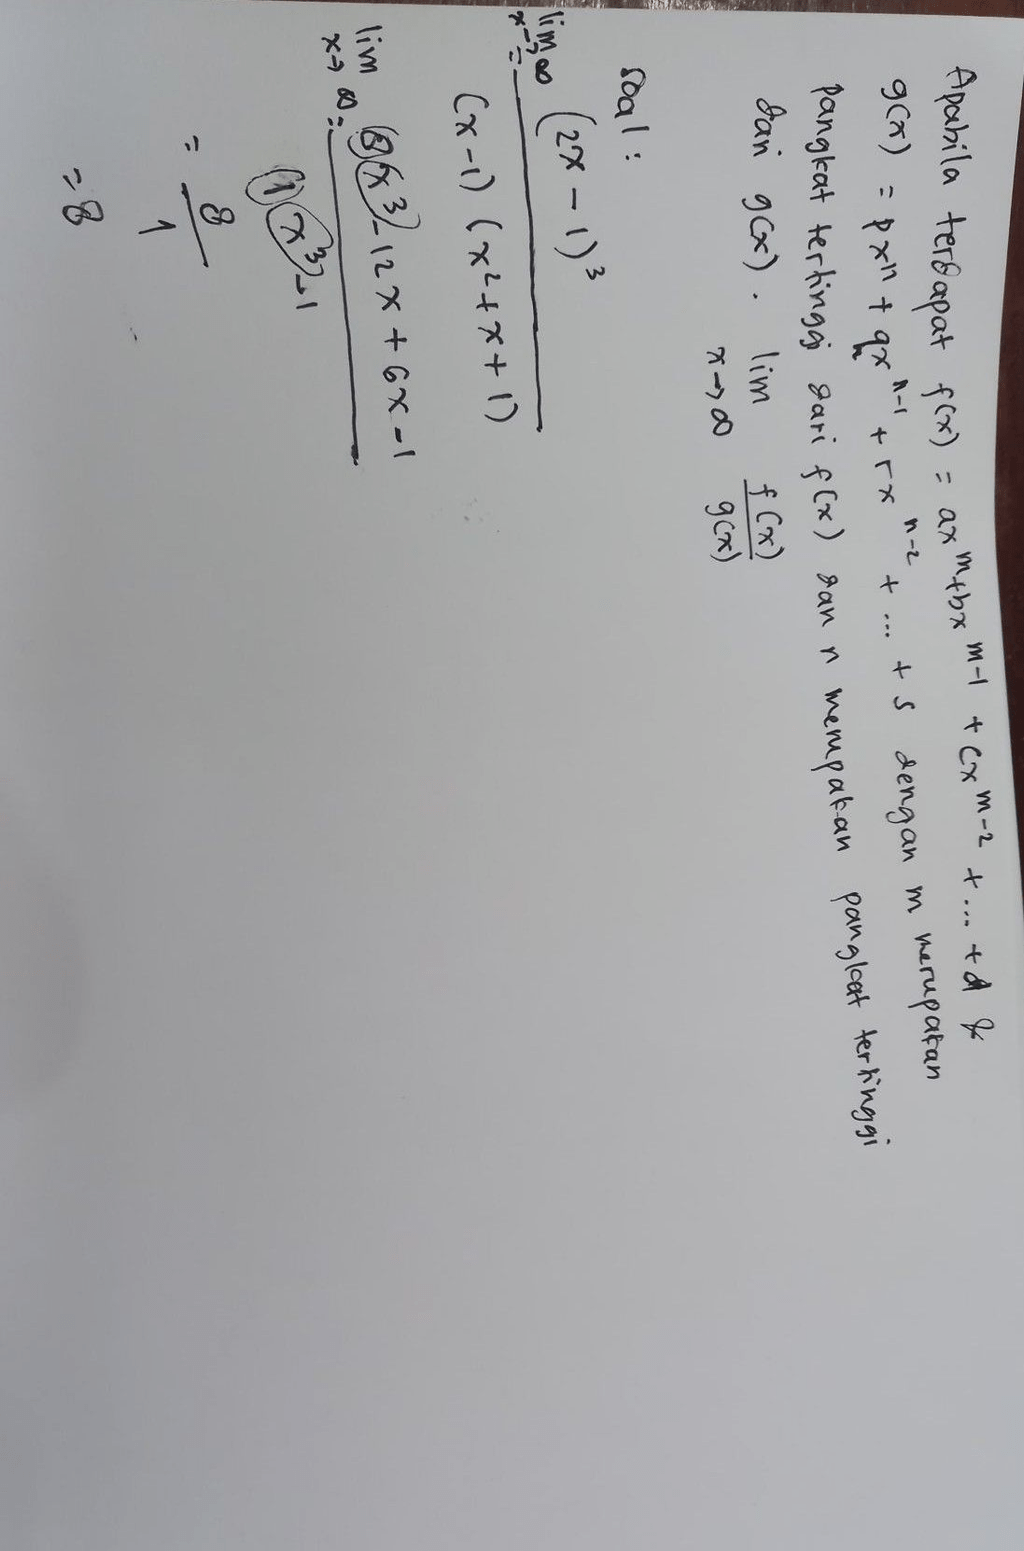 Apabila terdapat f(x) = ax^m + bx^m-1 + cx^m-2 + ... + d &
g(x) = px^n + qx^n-1 + rx^n-2 + ... + s dengan m merupakan
pangkat tertinggi dari f(x) dan n merupakan pangkat tertinggi
dari g(x). lim x→∞ f(x)/g(x)
Soal :
lim x→∞ = (2x - 1)^3
(x - 1) (x^2 + x + 1)
lim x→∞ = 8x^3 - 12x + 6x - 1
1x^3 - 1
= 8/1
= 8